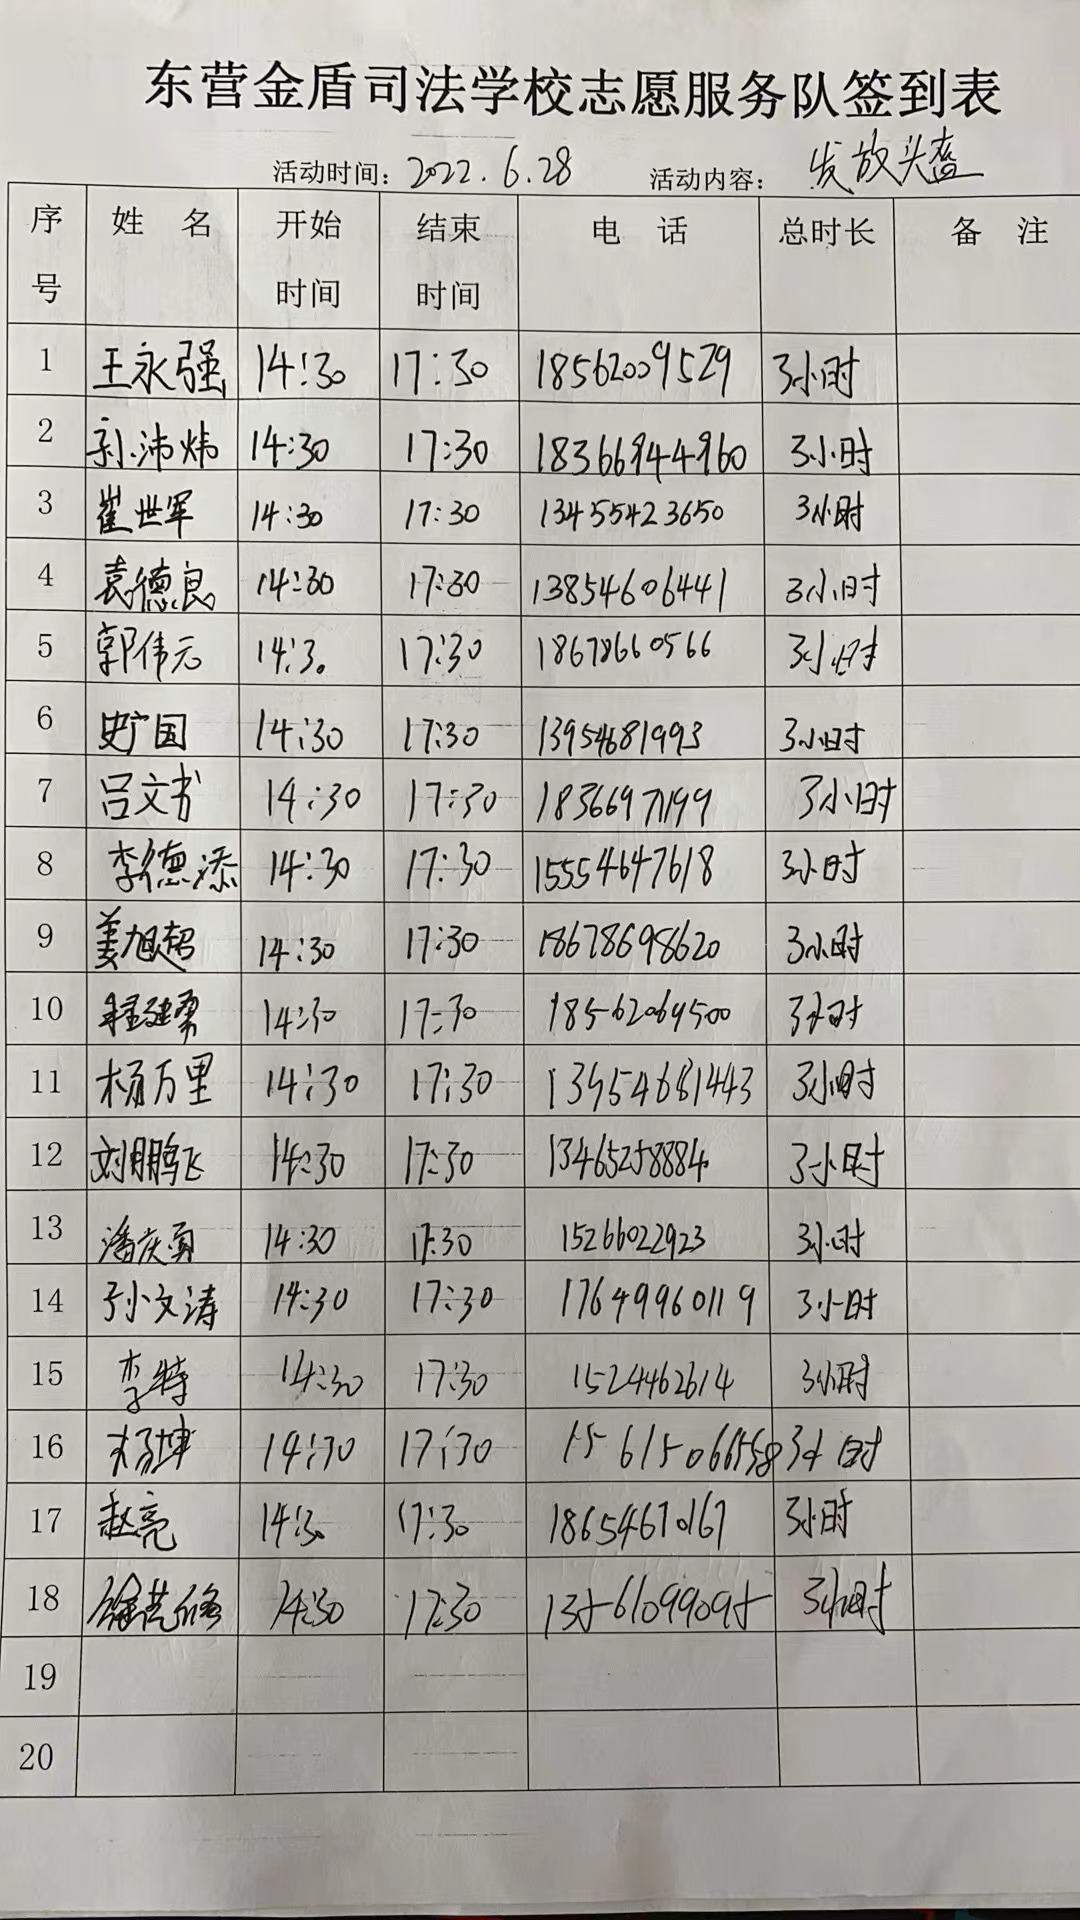 东营金盾司法学校志愿服务队签到表
活动时间：2022.6.28 活动内容：发放头盔
序号 姓名 开始时间 结束时间 电话 总时长 备注
1 王永强 14:30 17:30 18562009529 3小时
2 孙沛炜 14:30 17:30 18366944960 3小时
3 崔世军 14:30 17:30 13455423650 3小时
4 袁德良 14:30 17:30 13854606441 3小时
5 郭伟元 14:30 17:30 18678660566 3小时
6 史广国 14:30 17:30 13954681993 3小时
7 吕文书 14:30 17:30 18366971199 3小时
8 李德添 14:30 17:30 15554647618 3小时
9 姜旭超 14:30 17:30 18678698620 3小时
10 程建勇 14:30 17:30 18562069500 3小时
11 杨万里 14:30 17:30 13954681443 3小时
12 刘鹏飞 14:30 17:30 13465258884 3小时
13 潘庆勇 14:30 17:30 15266022923 3小时
14 孙文涛 14:30 17:30 17649960119 3小时
15 李特 14:30 17:30 1524462614 3小时
16 杨坤 14:30 17:30 15615066558 3小时
17 赵亮 14:30 17:30 18654670167 3小时
18 14:30 17:30 13561099095 3小时
19
20